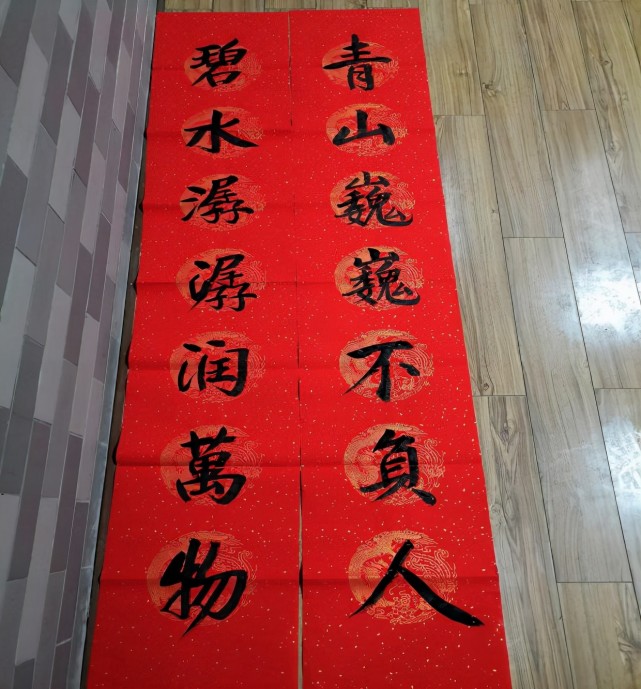 青山巍巍不負人
碧水潺潺润萬物